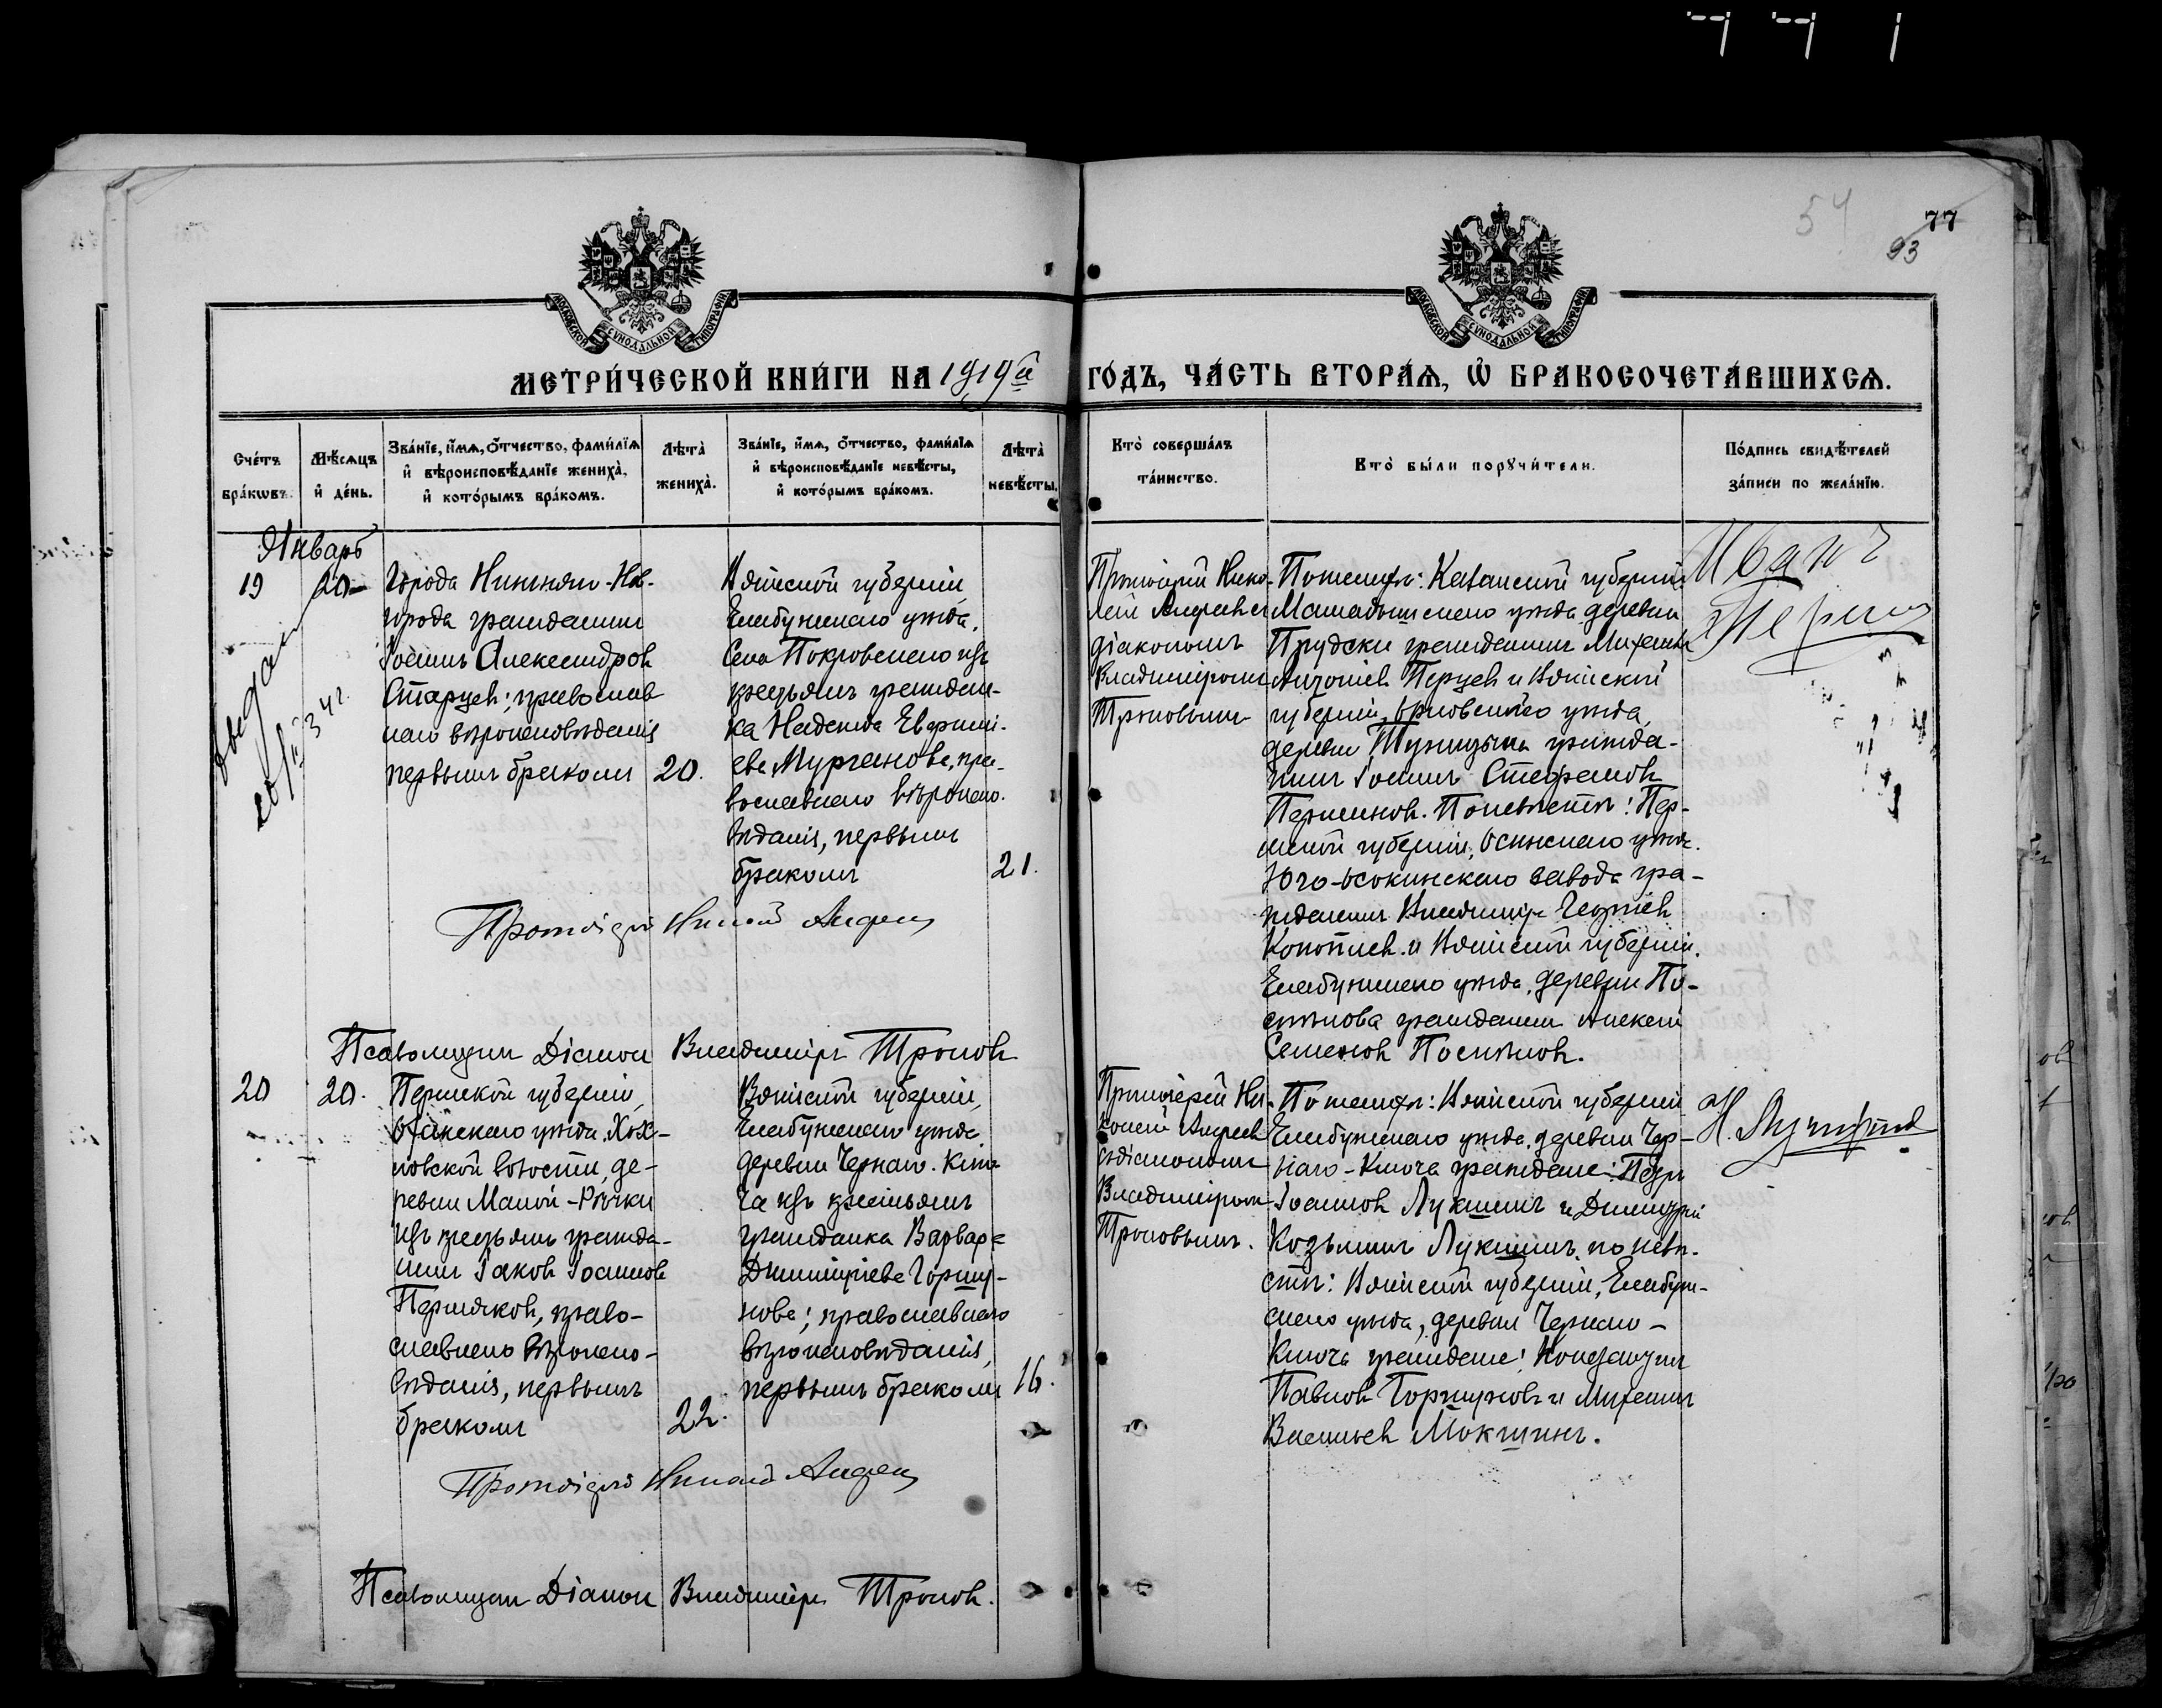 54
77
93
МОСКОВСКОЙ СѴНОДАЛЬНОЙ ТИПОГРАФІИ
МОСКОВСКОЙ СѴНОДАЛЬНОЙ ТИПОГРАФІИ
МЕТРИ́ЧЕСКОЙ КНИ́ГИ НА 1919й ГО́ДЪ, ЧА́СТЬ ВТОРА́Ѧ, Ѡ҆ БРАКОСОЧЕТА́ВШИХСѦ.
Сче́тъ бра́кѡвъ.
Мѣ́сѧцъ и҆ де́нь.
Зва́нїе, и҆́мѧ, ѻ҆́тчество, фами́лїѧ и҆ вѣроисповѣ́данїе жениха̀, и҆ кото́рымъ бра́комъ.
Лѣта̀ жениха̀.
Зва́нїе, и҆́мѧ, ѻ҆́тчество, фами́лїѧ и҆ вѣроисповѣ́данїе невѣ́сты, и҆ кото́рымъ бра́комъ.
Лѣта̀ невѣ́сты.
Кто̀ соверша́лъ та́инство.
Кто̀ бы́ли порꙋчи́тели.
По́дпись свидѣ́телей за́писи по жела́нїю.
Январь
19
20
Города Нижняго-Нов-
города гражданин
Іоаннъ Александров
Старцев; православ
наго вѣроисповѣданія
первымъ бракомъ
20.
Вятской губерніи
Елабужскаго уѣзда,
Села Покровскаго изъ
крестьянъ граждан-
ка Надежда Евфимі-
ева Мурганова, пра-
вославнаго вѣроиспо-
вѣданія, первымъ
бракомъ
21.
Протоіерей Нико-
лай Андреев с
діакономъ
Владиміромъ
Троновымъ
По женихѣ: Казанской губерніи
Мамадышскаго уѣзда деревни
гражданинъ Михаилъ
Перцев и Вятской
губерніи, Орловскаго уѣзда,
деревни гражда-
нинъ Іоаннъ Стефанов
По невѣстѣ: Пер-
мской губерніи, Осинскаго уѣзда
Юго-Осокинскаго завода гра-
жданинъ Владиміръ Георгіев
и Вятской губерніи
Елабужскаго уѣзда, деревни По-
сѣлнова гражданин Алексѣй
Семенов
Иванъ
Протоіерей Николай Андреев
Псаломщик Діакон Владиміръ Тронов
20
20.
Пермской губерніи,
Оханскаго уѣзда, Хох-
ловской волости, де-
ревни Малой-Рѣчки
изъ крестьянъ гражда-
нин Іаков Іоаннов
Пермяков, право-
славнаго вѣроиспо-
вѣданія, первымъ
бракомъ
22.
Вятской губерніи,
Елабужскаго уѣзда
деревни Чернаго-Клю-
ча изъ крестьянъ
гражданка Варвара
Димитріева Горшу-
нова; православнаго
вѣроисповѣданія,
первымъ бракомъ
16.
Протоіерей Ни-
колай Андреев
с діакономъ
Владиміромъ
Троновымъ.
По женихѣ: Вятской губерніи
Елабужскаго уѣзда, деревни Чер-
наго-Ключа граждане: Петръ
Іоаннов Лукшинъ и Димитрій
Козьминъ Лукшинъ. по невѣ-
стѣ: Вятской губерніи, Елабуж-
скаго уѣзда, деревни Чернаго-
Ключа граждане: Константин
Павлов Горшуновъ и Михаилъ
Васильев Мокшинъ.
Протоіерей Николай Андреев
Псаломщик Діакон Владиміръ Тронов.